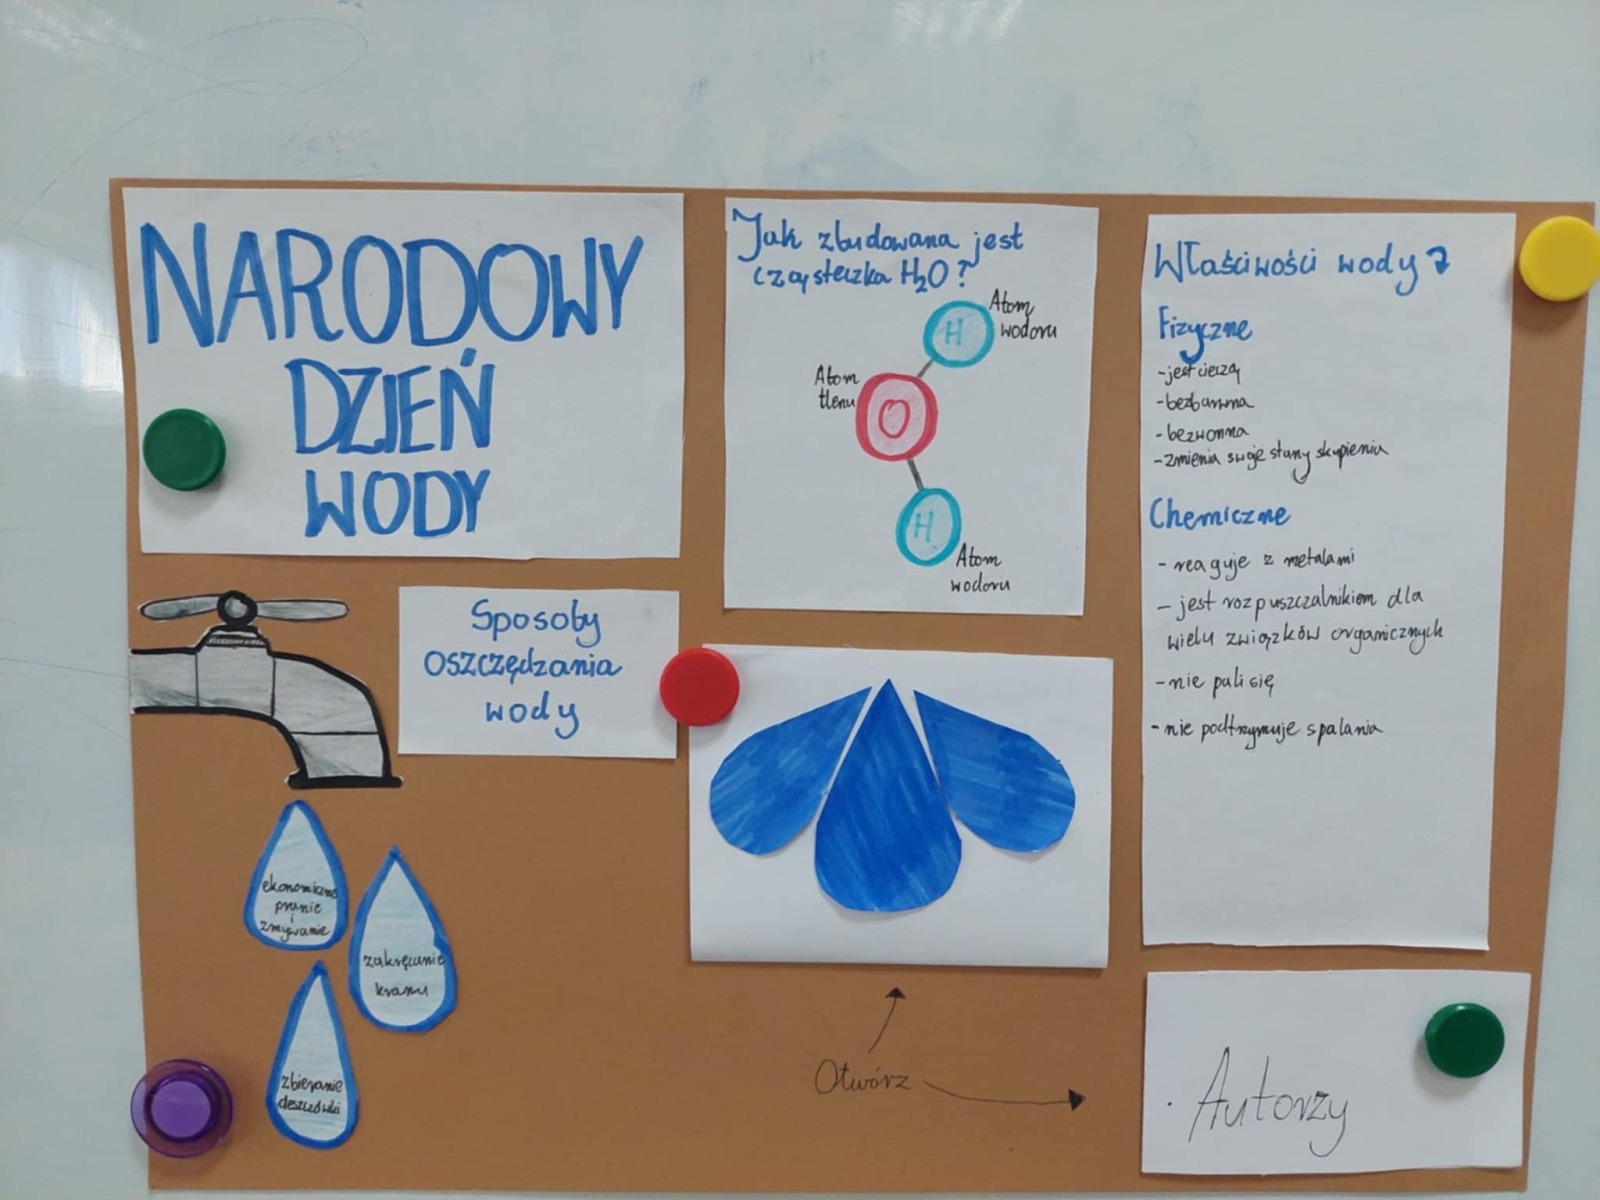 NARODOWY
DZIEŃ
WODY
Jak zbudowana jest
cząsteczka H₂O?
Atom
wodoru
H
Atom
tlenu
O
H
Atom
wodoru
Właściwości wody
Fizyczne
-jest cieczą
-bezbarwna
-bezwonna
-zmienia swoje stany skupienia
Chemiczne
- reaguje z metalami
- jest rozpuszczalnikiem dla
wielu związków organicznych
- nie pali się
- nie podtrzymuje spalania
Sposoby
oszczędzania
wody
ekonomiczne
pranie
i
zmywanie
zakręcanie
kranu
zbieranie
deszczówki
Otwórz
Autorzy